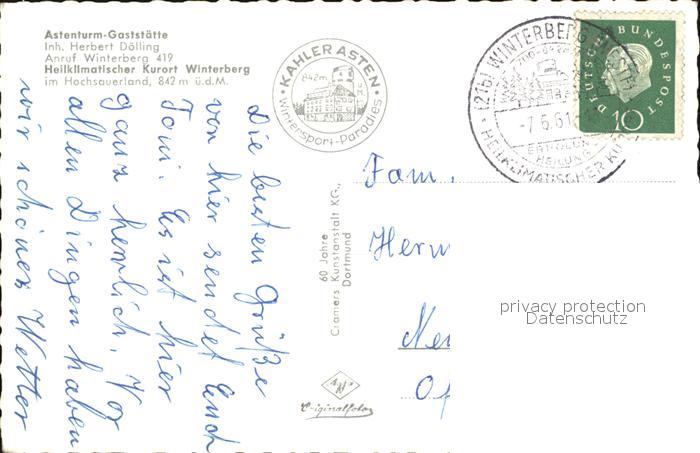 Astenturm-Gaststätte
Inh. Herbert Dölling
Anruf Winterberg 419
Heilklimatischer Kurort Winterberg
im Hochsauerland, 842 m ü.d.M.
KAHLER ASTEN
842m
Wintersport-Paradies
(21b) WINTERBERG (WESTF
700-842m
-7.6.61
ERHOLUNG
HEILUNG
HEILKLIMATISCHER KU
DEUTSCHE BUNDESPOST
10
Die besten Grüße
von hier sendet Euch
Toni. Es ist hier
ganz herrlich. Vor
allen Dingen haben
wir schönes Wetter
60 Jahre
Cramers Kunstanstalt KG.,
Dortmund
Originalfoto
Fam.
Herm
privacy protection
Datenschutz